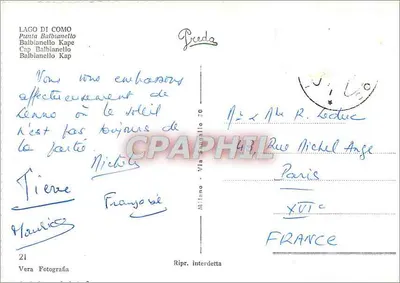 LAGO DI COMO
Punta Balbianello
Balbianello Kape
Cap Balbianello
Balbianello Kap
Greda
Vous vous embrassons
affectueusement de
Lenno où le soleil
n'est pas toujours de
la partie.
Michel
Pierre
Françoise
Maurice
Mr & Mme R. Leduc
43, Rue Michel Ange
Paris
XVIe
FRANCE
CPAPHIL
Milano - Via
20
21
Vera Fotografia
Ripr. interdetta